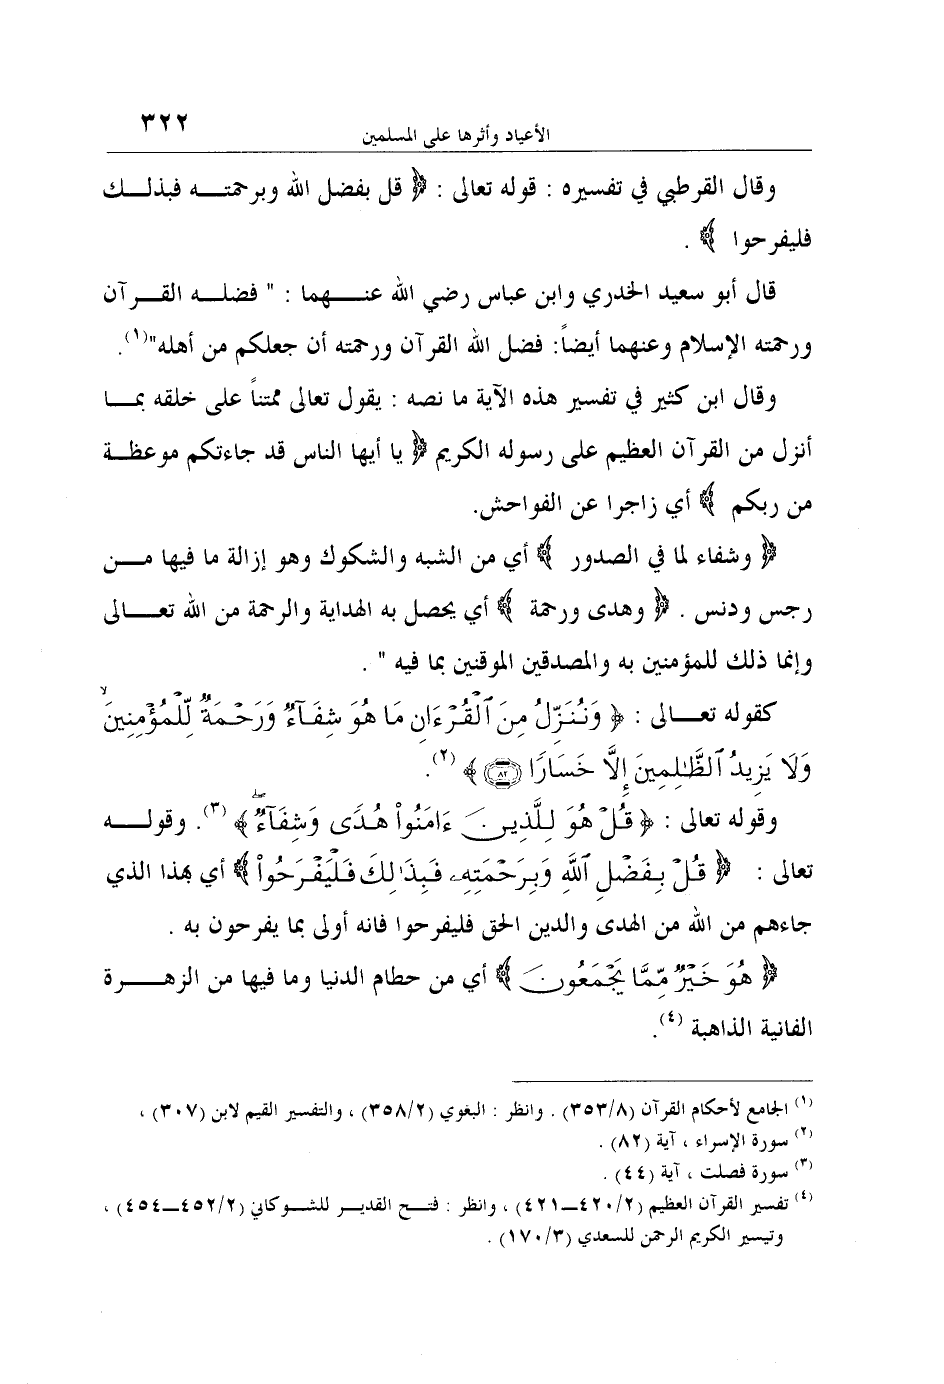 ٣٢٢
الأعياد وأثرها على المسلمين
وقال القرطبي في تفسيره : قوله تعالى : ﴿ قل بفضل الله وبرحمتــه فبذلــك
فليفرحوا ﴾ .
قال أبو سعيد الخدري وابن عباس رضي الله عنــهما : " فضلــه القــرآن
ورحمته الإسلام وعنهما أيضاً: فضل الله القرآن ورحمته أن جعلكم من أهله"(١).
وقال ابن كثير في تفسير هذه الآية ما نصه : يقول تعالى ممتناً على خلقه بمــا
أنزل من القرآن العظيم على رسوله الكريم ﴿ يا أيها الناس قد جاءتكم موعظــة
من ربكم ﴾ أي زاجرا عن الفواحش.
﴿ وشفاء لما في الصدور ﴾ أي من الشبه والشكوك وهو إزالة ما فيها مــن
رجس ودنس . ﴿ وهدى ورحمة ﴾ أي يحصل به الهداية والرحمة من الله تعــالى
وإنما ذلك للمؤمنين به والمصدقين الموقنين بما فيه " .
كقوله تعــالى : ﴿ وَنُنَزِّلُ مِنَ ٱلْقُرْءَانِ مَا هُوَ شِفَآءٌ وَرَحْمَةٌ لِّلْمُؤْمِنِينَ ۙ
وَلَا يَزِيدُ ٱلظَّٰلِمِينَ إِلَّا خَسَارًا ٨٢ ﴾ (٢).
وقوله تعالى : ﴿ قُلْ هُوَ لِلَّذِينَ ءَامَنُوا۟ هُدًى وَشِفَآءٌ ۖ ﴾ (٣). وقولــه
تعالى : ﴿ قُلْ بِفَضْلِ ٱللَّهِ وَبِرَحْمَتِهِۦ فَبِذَٰلِكَ فَلْيَفْرَحُوا۟ ﴾ أي بهذا الذي
جاءهم من الله من الهدى والدين الحق فليفرحوا فانه أولى بما يفرحون به .
﴿ هُوَ خَيْرٌ مِّمَّا يَجْمَعُونَ ﴾ أي من حطام الدنيا وما فيها من الزهــرة
الفانية الذاهبة (٤).
(١) الجامع لأحكام القرآن (٣٥٣/٨) . وانظر : البغوي (٣٥٨/٢) ، والتفسير القيم لابن (٣٠٧) ،
(٢) سورة الإسراء ، آية (٨٢) .
(٣) سورة فصلت ، آية (٤٤) .
(٤) تفسير القرآن العظيم (٤٢٠/٢ــ٤٢١) ، وانظر : فتــح القديــر للشــوكاني (٤٥٢/٢ــ٤٥٤) ،
وتيسير الكريم الرحمن للسعدي (١٧٠/٣) .